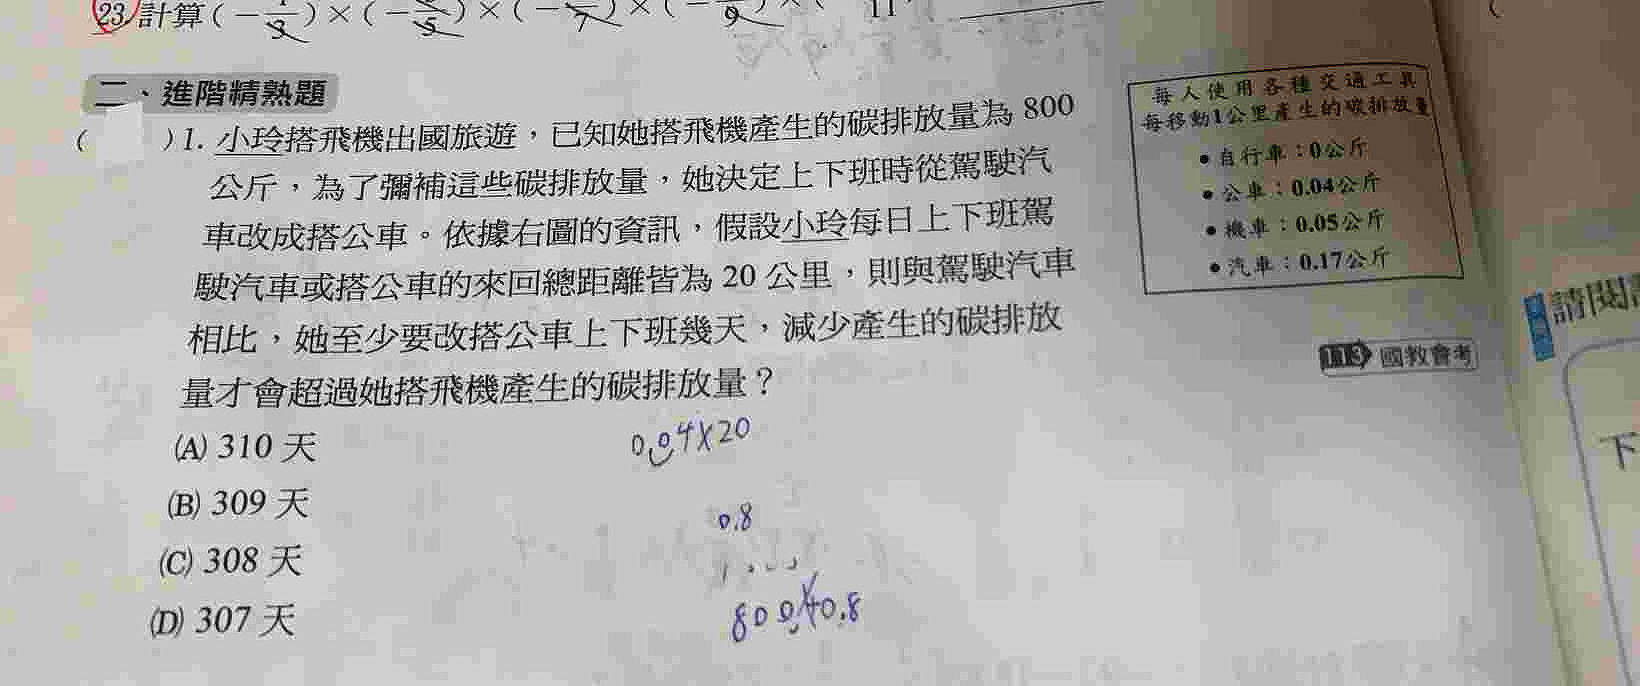 23. 計算(－1/3)×(－/5)×(－/7)×(－/9)×( 11
二、進階精熟題
( )1. 小玲搭飛機出國旅遊，已知她搭飛機產生的碳排放量為 800
公斤，為了彌補這些碳排放量，她決定上下班時從駕駛汽
車改成搭公車。依據右圖的資訊，假設小玲每日上下班駕
駛汽車或搭公車的來回總距離皆為 20 公里，則與駕駛汽車
相比，她至少要改搭公車上下班幾天，減少產生的碳排放
量才會超過她搭飛機產生的碳排放量？
(A) 310 天
(B) 309 天
(C) 308 天
(D) 307 天
每人使用各種交通工具
每移動1公里產生的碳排放量
•自行車：0公斤
•公車：0.04公斤
•機車：0.05公斤
•汽車：0.17公斤
113 國教會考
0.04×20
0.8
請閱
下